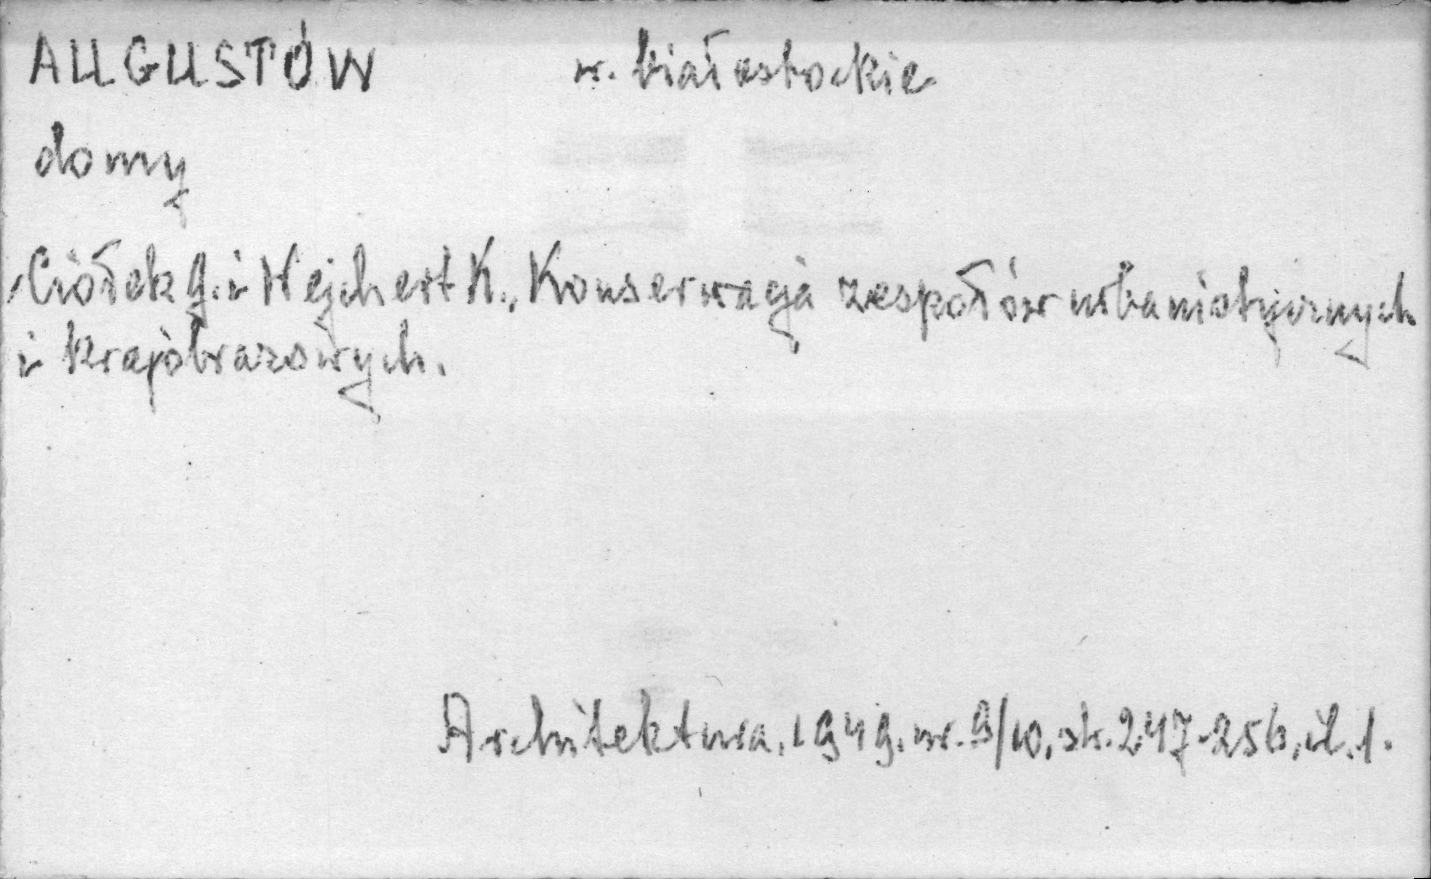 AUGUSTÓW w. białostockie
domy
Ciołek G. i Wejchert K., Konserwacja zespołów urbanistycznych
i krajobrazowych.
Architektura, 1949. nr. 9/10, str. 247-256, il. 1.